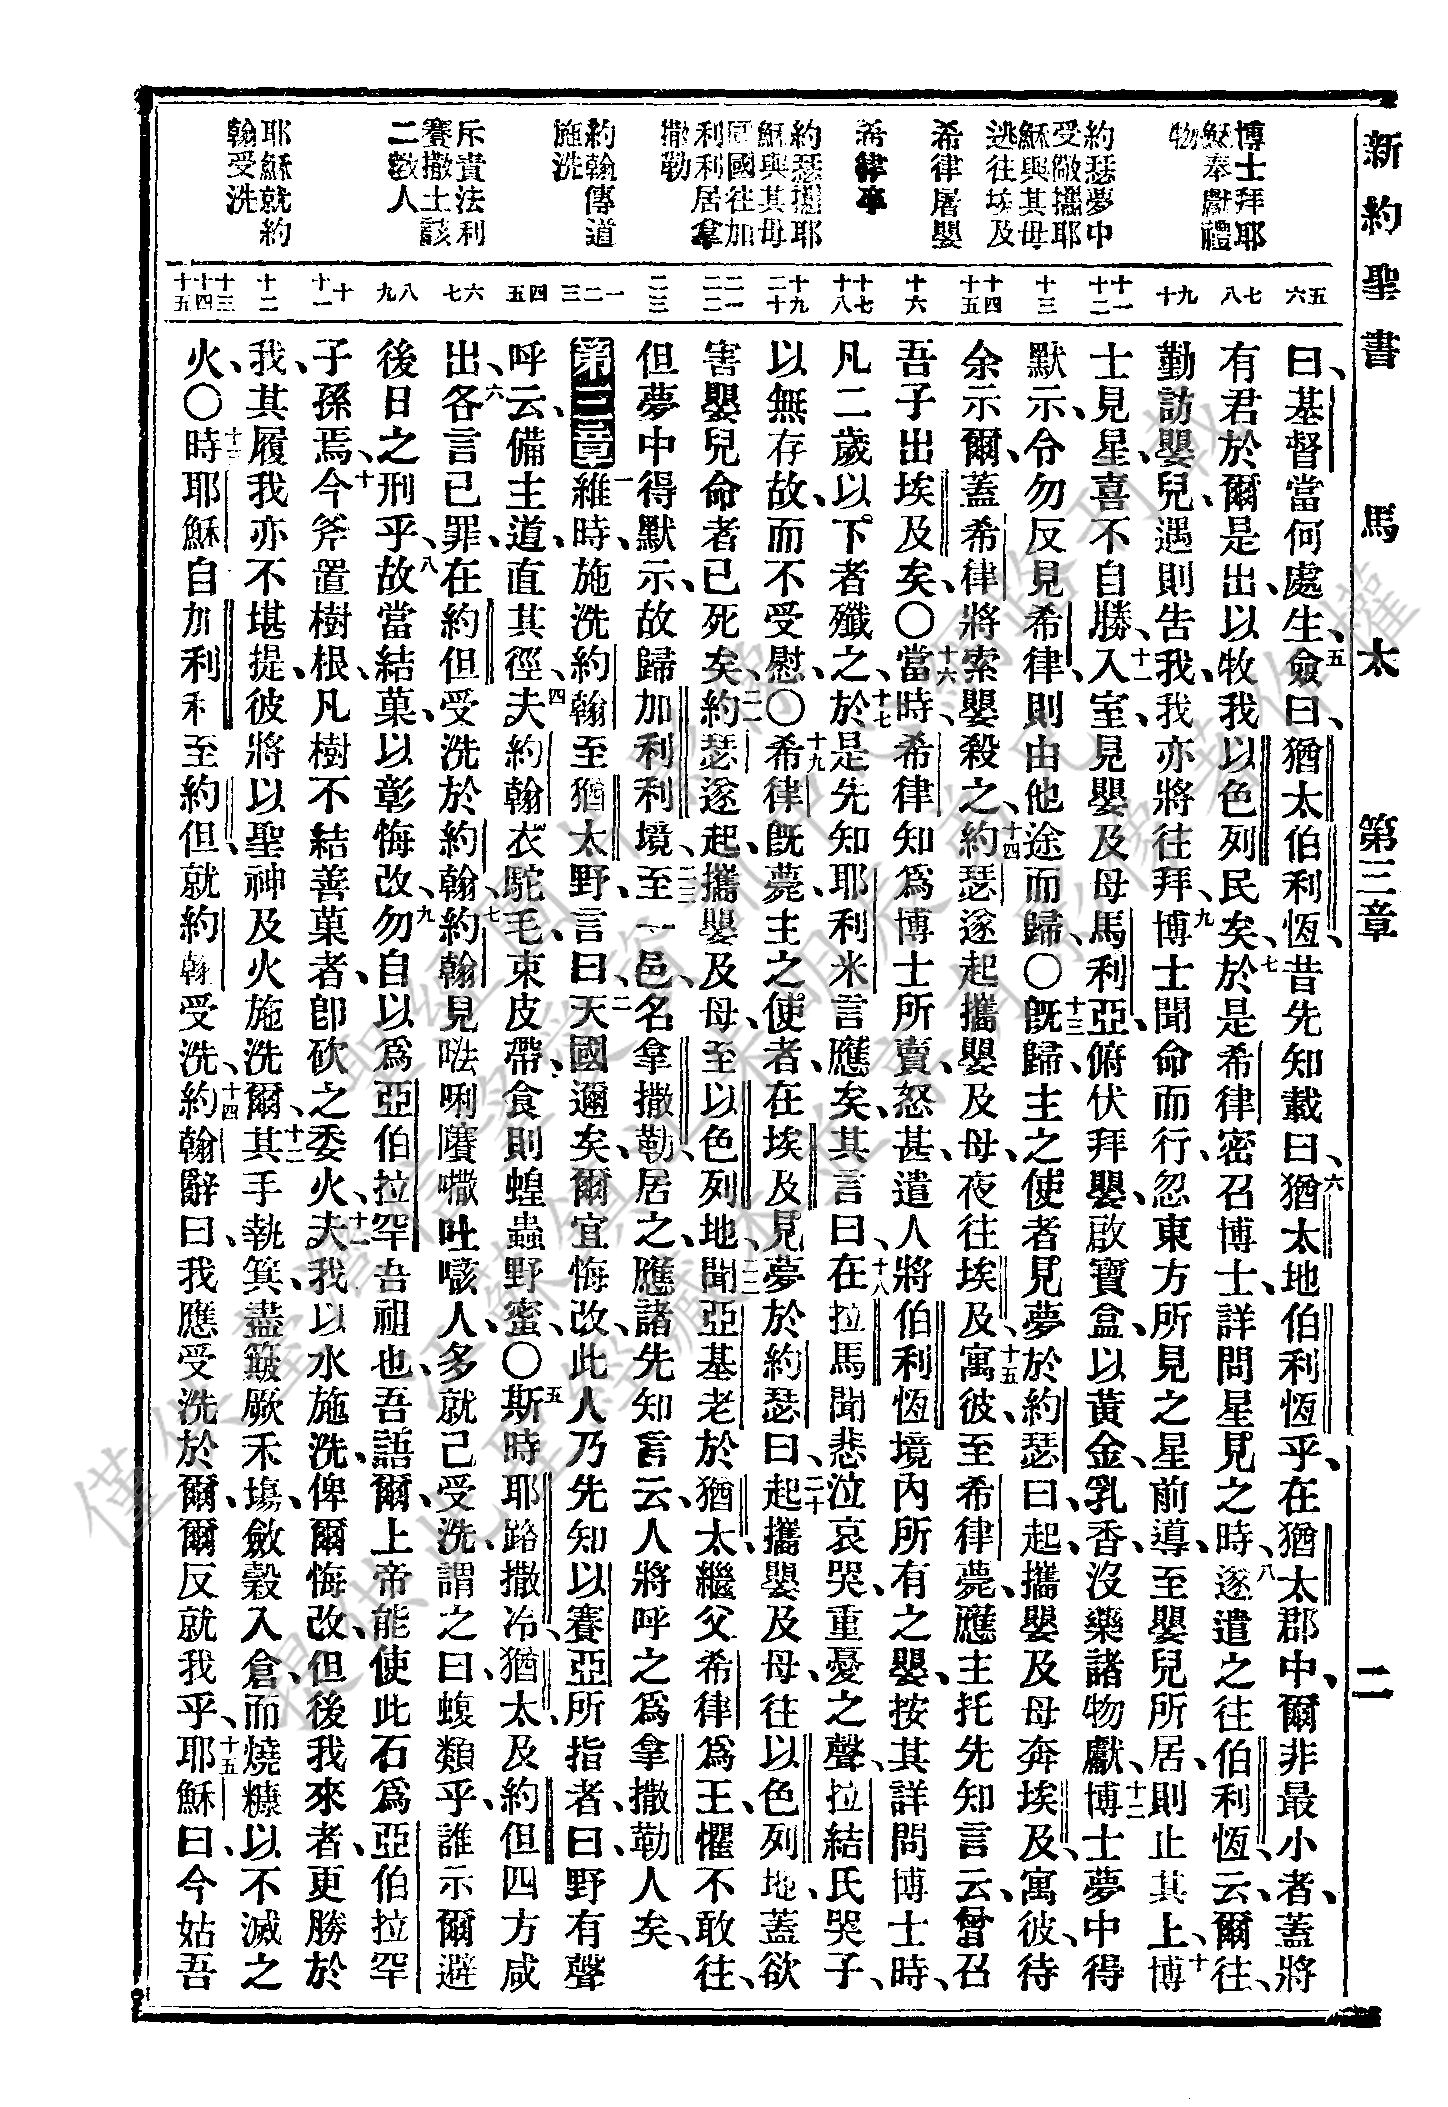 新約聖書 馬太 第三章 二
博士拜耶
穌奉獻禮
物
約瑟夢中
受儆攜耶
穌與其母
逃往埃及
希律屠嬰
希律卒
約瑟攜耶
穌與其母
回國往加
利利居拿
撒勒
約翰傳道
施洗
斥責法利
賽撒土該
二教人
耶穌就約
翰受洗
五
六
七
八
九
十
十一
十二
十三
十四
十五
十六
十七
十八
十九
二十
二一
二二
二三
一
二
三
四
五
六
七
八
九
十
十一
十二
十三
十四
十五
曰、基督當何處生、五僉曰、猶太伯利恆、昔先知載曰、六猶太地伯利恆乎、在猶太郡中、爾非最小者、蓋將
有君於爾是出、以牧我以色列民矣、七於是希律密召博士、詳問星見之時、八遂遣之往伯利恆、云、爾往、
勤訪嬰兒、遇則告我、我亦將往拜、九博士聞命而行、忽東方所見之星前導、至嬰兒所居、則止其上、十博
士見星、喜不自勝、十一入室、見嬰及母馬利亞、俯伏拜嬰、啟寶盒、以黃金、乳香、沒藥諸物獻、十二博士夢中得
默示、令勿反見希律、則由他途而歸、〇十三既歸、主之使者見夢於約瑟曰、起、攜嬰及母奔埃及、寓彼、待
余示爾、蓋希律將索嬰殺之、十四約瑟遂起、攜嬰及母、夜往埃及、十五寓彼、至希律薨、應主托先知言云、曾召
吾子出埃及矣、〇十六當時、希律知為博士所賣、怒甚、遣人將伯利恆境內所有之嬰、按其詳問博士時、
凡二歲以下者殲之、十七於是先知耶利米言應矣、其言曰、十八在拉馬聞悲泣哀哭、重憂之聲、拉結氏哭子、
以無存故、而不受慰、〇十九希律既薨、主之使者、在埃及見夢於約瑟曰、二十起、攜嬰及母、往以色列地、蓋欲
害嬰兒命者已死矣、二一約瑟遂起、攜嬰及母、至以色列地、二二聞亞基老於猶太、繼父希律為王、懼不敢往、
但夢中得默示、故歸加利利境、二三至一邑、名拿撒勒、居之、應諸先知言云、人將呼之為拿撒勒人矣、
第三章 一維時、施洗約翰至猶太野、言曰、二天國邇矣、爾宜悔改、此人乃先知以賽亞所指者、曰、野有聲
呼云、備主道、直其徑、四夫約翰衣駝毛、束皮帶、食則蝗蟲野蜜、〇五斯時、耶路撒冷、猶太、及約但四方咸
出、六各言己罪、在約但受洗於約翰、七約翰見𠵽唎㘔㘚吐㗒人、多就己受洗、謂之曰、蝮類乎、誰示爾避
後日之刑乎、八故當結菓、以彰悔改、九勿自以為亞伯拉罕吾祖也、吾語爾、上帝能使此石為亞伯拉罕
子孫焉、十今斧置樹根、凡樹不結善菓者、即砍之委火、十一夫我以水施洗、俾爾悔改、但後我來者、更勝於
我、其履我亦不堪提、彼將以聖神及火施洗爾、十二其手執箕、盡簸厥禾塲、斂穀入倉、而燒糠以不滅之
火、〇十三時、耶穌自加利利至約但、就約翰受洗、十四約翰辭曰、我應受洗於爾、爾反就我乎、十五耶穌曰、今姑吾